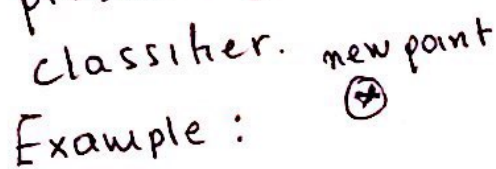 classifier. new point
Example :